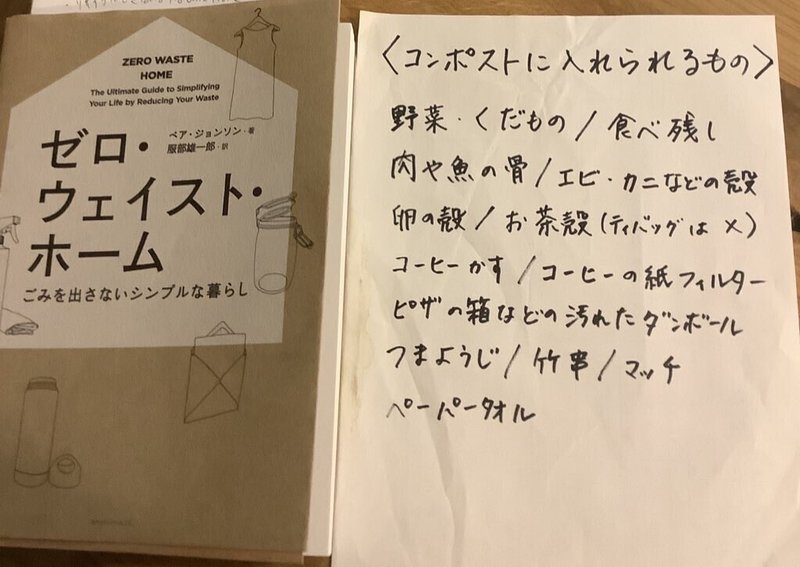 ZERO WASTE
HOME
The Ultimate Guide to Simplifying
Your Life by Reducing Your Waste
ゼロ・
ウェイスト・
ホーム
ベア・ジョンソン・著
服部雄一郎・訳
ごみを出さないシンプルな暮らし
〈コンポストに入れられるもの〉
野菜・くだもの/食べ残し
肉や魚の骨/エビ・カニなどの殻
卵の殻/お茶殻(ティバッグは×)
コーヒーかす/コーヒーの紙フィルター
ピザの箱などの汚れたダンボール
つまようじ/竹串/マッチ
ペーパータオル